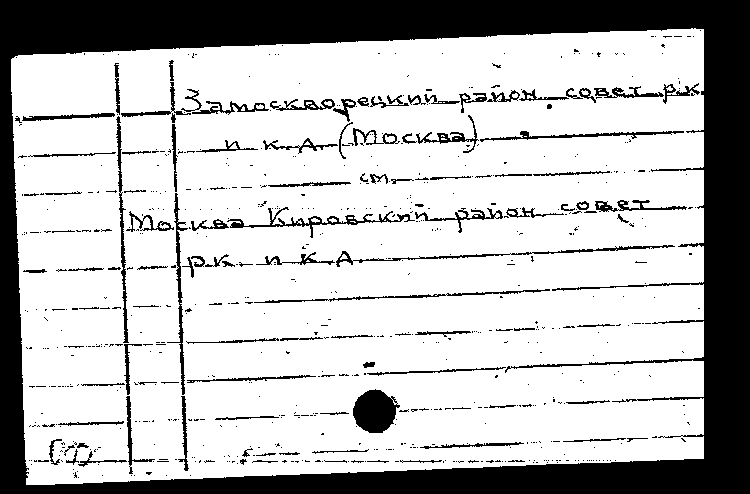 Замоскворецкий район. совет р.к.
и к.д. (Москва)
см.
Москва. Кировский район совет
р.к. и к.д.